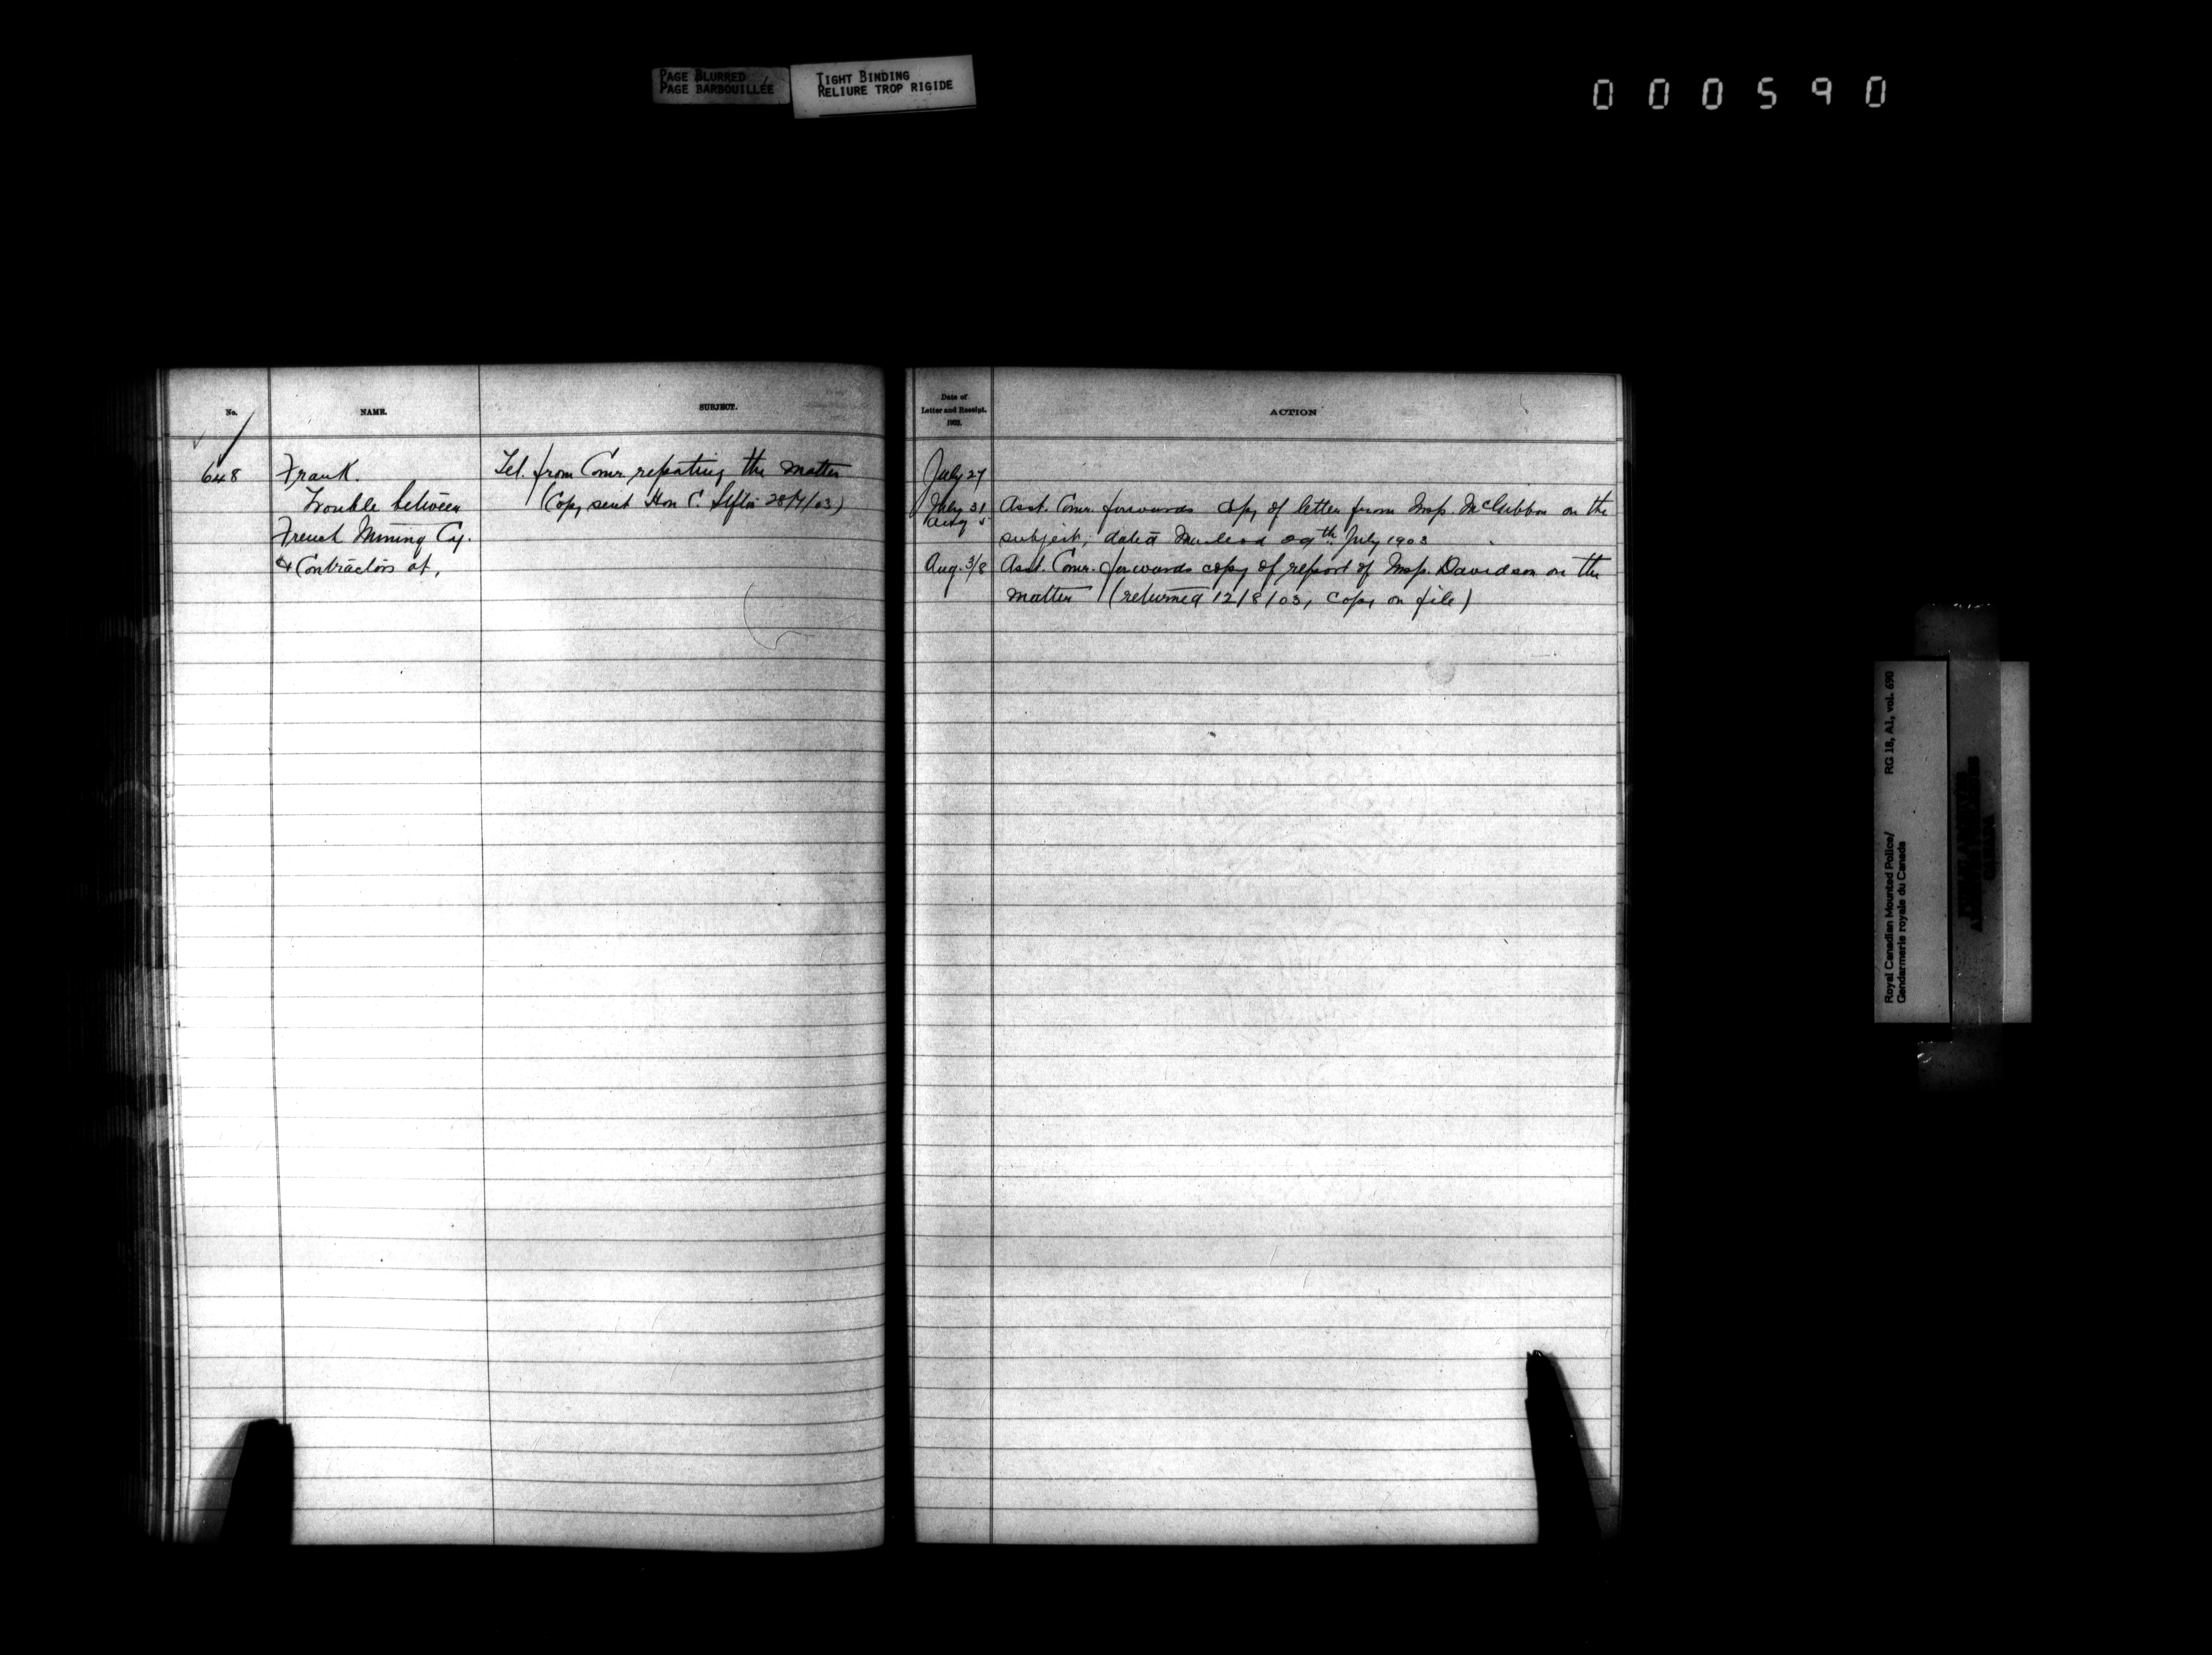 PAGE BLURRED
PAGE BARBOUILLÉE
TIGHT BINDING
RELIURE TROP RIGIDE
000590
No.
NAME.
SUBJECT.
648
Frank.
Trouble between
French Mining Cy.
& Contractors at,
Tel. from Comr. reporting the matter
(Copy sent Hon C. Sifton 28/7/03)
Date of
Letter and Receipt.
1903.
ACTION
July 27
July 31
Aug 5
Asst. Comr. forwards copy of letter from Insp. McGibbon on the
subject, dated Macleod 29th July 1903
Aug. 3/8
Asst. Comr. forwards copy of report of Insp. Davidson on the
matter (returned 12/8/03, copy on file)
Royal Canadian Mounted Police/ RG 18, A1, vol. 690
Gendarmerie royale du Canada